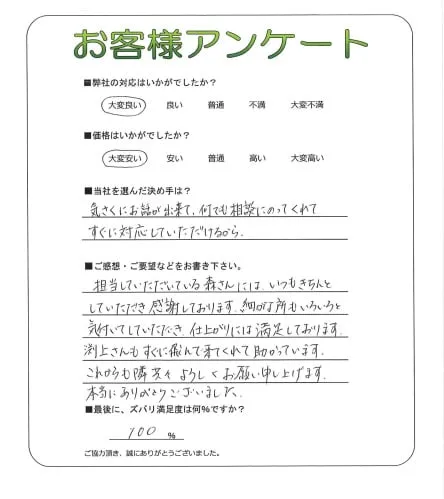 お客様アンケート
■弊社の対応はいかがでしたか?
大変良い 良い 普通 不満 大変不満
■価格はいかがでしたか?
大変安い 安い 普通 高い 大変高い
■当社を選んだ決め手は?
気さくにお話が出来て、何でも相談にのってくれて
すぐに対応していただけるから。
■ご感想・ご要望などをお書き下さい。
担当していただいている森さんには、いつもきちんと
していただき感謝しております。細かな所もいろいろと
気付いてしていただき、仕上がりには満足しております。
渕上さんもすぐに飛んで来てくれて助かっています。
これからも隣共々よろしくお願い申し上げます。
本当にありがとうございました。
■最後に、ズバリ満足度は何%ですか?
100 %
ご協力頂き、誠にありがとうございました。